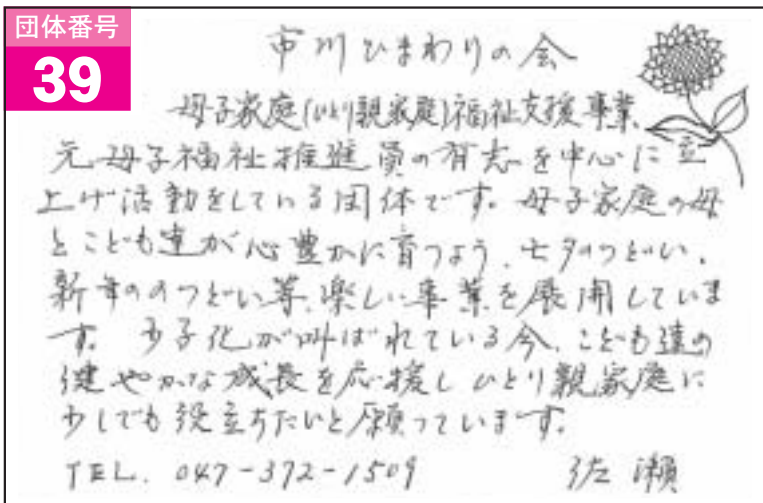 団体番号
39
市川ひまわりの会
母子家庭(ひとり親家庭)福祉支援事業
元母子福祉推進員の有志を中心に立
上げ活動をしている団体です。母子家庭の母
とこども達が心豊かに育つよう、七夕のつどい、
新年ののつどい等、楽しい事業を展開していま
す。少子化が叫ばれている今、こども達の
健やかな成長を応援しひとり親家庭に
少しでも役立ちたいと願っています。
TEL. 047-372-1509 佐瀬